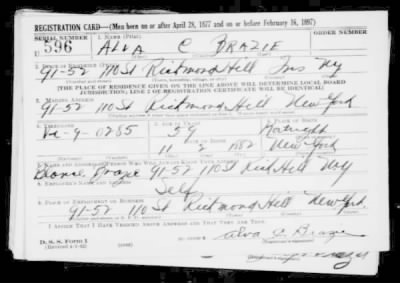 REGISTRATION CARD—(Men born on or after April 28, 1877 and on or before February 16, 1897)
SERIAL NUMBER 1. NAME (Print) ORDER NUMBER
U 596 ALVA C BRAZIE
91-52 110 St Richmond Hill Qns Ny
[THE PLACE OF RESIDENCE GIVEN ON THE LINE ABOVE WILL DETERMINE LOCAL BOARD
JURISDICTION; LINE 2 OF REGISTRATION CERTIFICATE WILL BE IDENTICAL]
3. MAILING ADDRESS
91-52 110 St Richmond Hill New York
4. TELEPHONE 5. AGE IN YEARS 6. PLACE OF BIRTH
9-0285 59
DATE OF BIRTH
11 2 1882 New York
7. NAME AND ADDRESS OF PERSON WHO WILL ALWAYS KNOW YOUR ADDRESS
91-52 110 St Rich Hill Ny
8. EMPLOYER'S NAME AND ADDRESS
Self
9. PLACE OF EMPLOYMENT OR BUSINESS
91-52 110 St Richmond Hill New York
I AFFIRM THAT I HAVE VERIFIED ABOVE ANSWERS AND THAT THEY ARE TRUE.
D. S. S. Form 1
(Revised 4-1-42) (over) Alva C Brazie